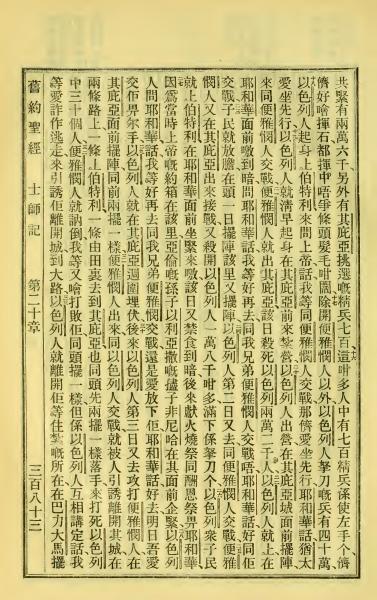 共緊有兩萬六千另外有其庇亞挑選嘅精兵七百這咁多人中有七百精兵係使左手个儕
儕好會揮石都揮中唔爭條頭髮毛咁團除開便雅憫人以外以色列人拏刀嘅兵有四十萬
以色列人起身上伯特利來問上帝話我等同便雅憫人交戰那儕愛坐先行耶和華話猶太
愛坐先行以色列人就清早起身在其庇亞前來紮營以色列人出營在其庇亞城面前擺陣
來同便雅憫人交戰便雅憫人就出其庇亞該日殺死以色列兩萬二千人以色列人就上在
耶和華面前噭到暗問耶和華話我等好再去同我兄弟便雅憫人交戰唔耶和華話好同佢
交戰子民就放膽在頭一日擺陣該里又擺陣以色列人第二日又去同便雅憫人交戰便雅
憫人又在其庇亞出來接戰又殺開以色列人一萬八千咁多滿下係拏刀个以色列衆子民
就上伯特利在耶和華面前坐緊來噭該日又禁食到暗後來獻火燒祭同酬恩祭畀耶和華
因爲當時上帝嘅約箱在該里亞倫嘅孫子以利亞撒嘅儘子非尼哈在其面前企緊以色列
人問耶和華話我等好再去同我兄弟便雅憫交戰還是愛放下佢耶和華話好去明日吾愛
交佢畀尔手以色列人就在其庇亞週圍埋伏後來以色列人第三日又去攻打便雅憫人在
其庇亞面前擺陣同前兩擺一樣便雅憫人出來同以色列人交戰就被人引誘離開其城在
兩條路上一條上伯特利一條由田裏去到其庇亞也同頭先兩擺一樣落手來打死以色列
中三十個人便雅憫人就訥倒我等又會打敗佢同頭擺一樣但係以色列人互相講定話我
等愛詐作逃走來引誘佢離開城到大路以色列人就離開佢等住紮嘅所在在巴力大馬擺
舊約聖經 士師記 第二十章 三百八十三